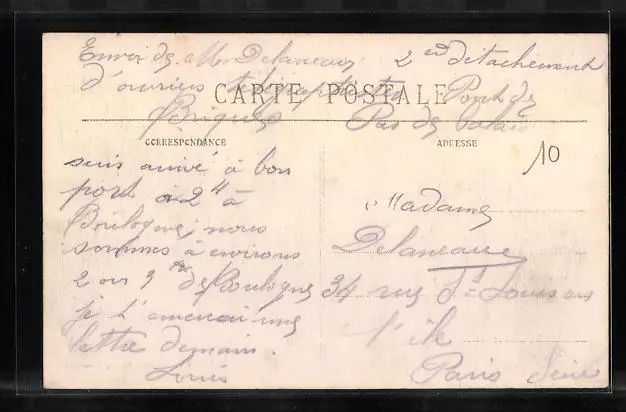 Envoi de M. Delaneau 2me détachement
d'ouvriers télégraphistes Pont de
Briques Pas de Calais
CARTE POSTALE
CORRESPONDANCE
ADRESSE
10
suis arrivé à bon
port à 2 h à
Boulogne, nous
sommes à environs
2 ou 3 de Boulogne
je t'enverrai une
lettre demain.
Louis
Madame
Delaneau
34 rue St Louis en
l'île
Paris Seine